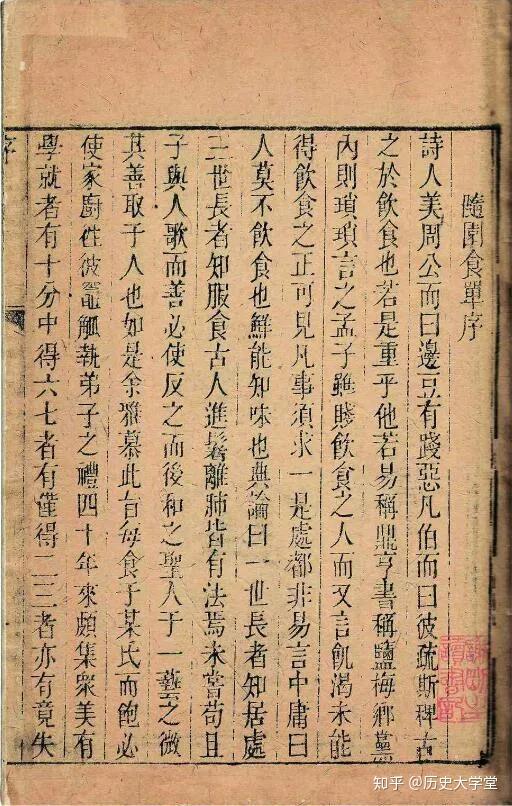 隨園食單序
詩人美周公而曰邊豆有踐惡凡伯而曰彼疏斯稗古
之於飲食也若是重乎他若易稱鼎亨書稱鹽梅鄉黨
內則瑣瑣言之孟子雖賤飲食之人而又言飢渴未能
得飲食之正可見凡事須求一是處都非易言中庸曰
人莫不飲食也鮮能知味也典論曰一世長者知居處
三世長者知服食古人進鬐離肺皆有法焉未嘗苟且
子與人歌而善必使反之而後和之聖人于一藝之微
其善取于人也如是余雅慕此旨每食于某氏而飽必
使家廚往彼竈觚執弟子之禮四十年來頗集眾美有
學就者有十分中得六七者有僅得二三者亦有竟失
序
知乎 @历史大学堂